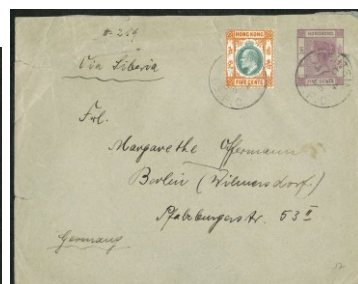 # 269
Via Siberia
HONG KONG
FIVE CENTS
HONGKONG
FIVE CENTS
Frl.
Margarethe Offermann
Berlin (Wilmersdorf)
Pfalzburgerstr. 53 II
Germany